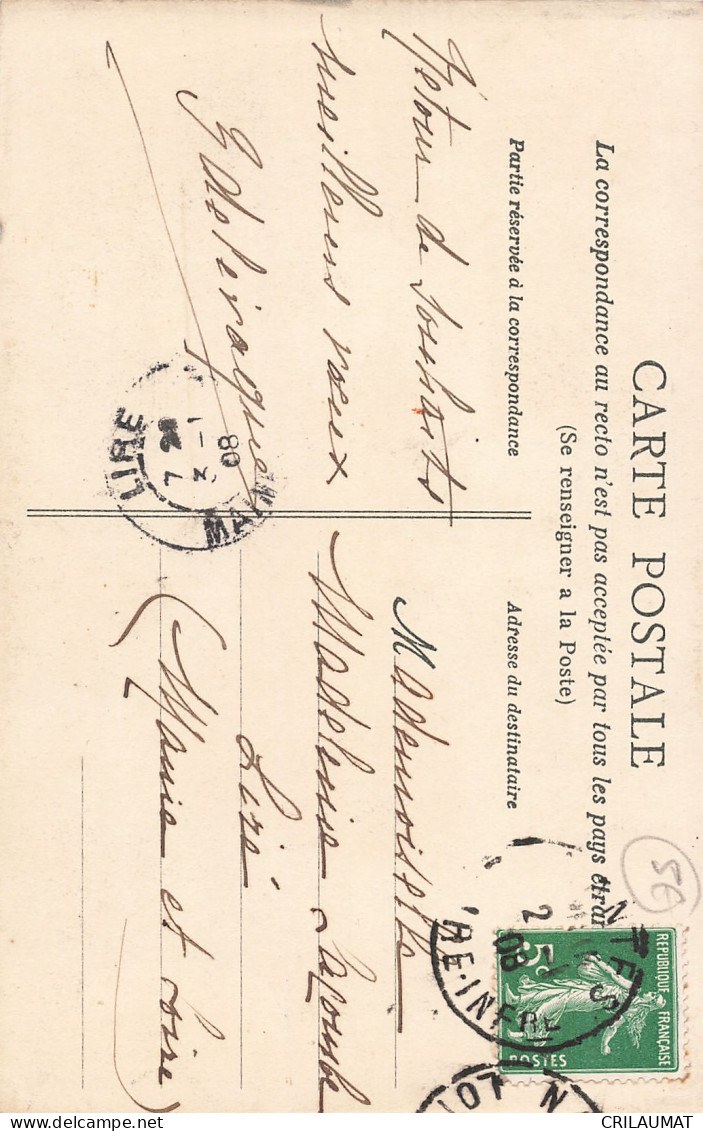 CARTE POSTALE
La correspondance au recto n'est pas acceptée par tous les pays étran
(Se renseigner a la Poste)
Partie réservée à la correspondance
Adresse du destinataire
Retour de souhaits
meilleurs vœux
Mademoiselle
Madeleine
Liré
(Maine et Loire)
LIRE
7
2 - 1
08
MAINE
NTES
2 - 1
08
RE-INFRE
LOI
N
REPUBLIQUE FRANÇAISE
5c
POSTES
5€
CRILAUMAT